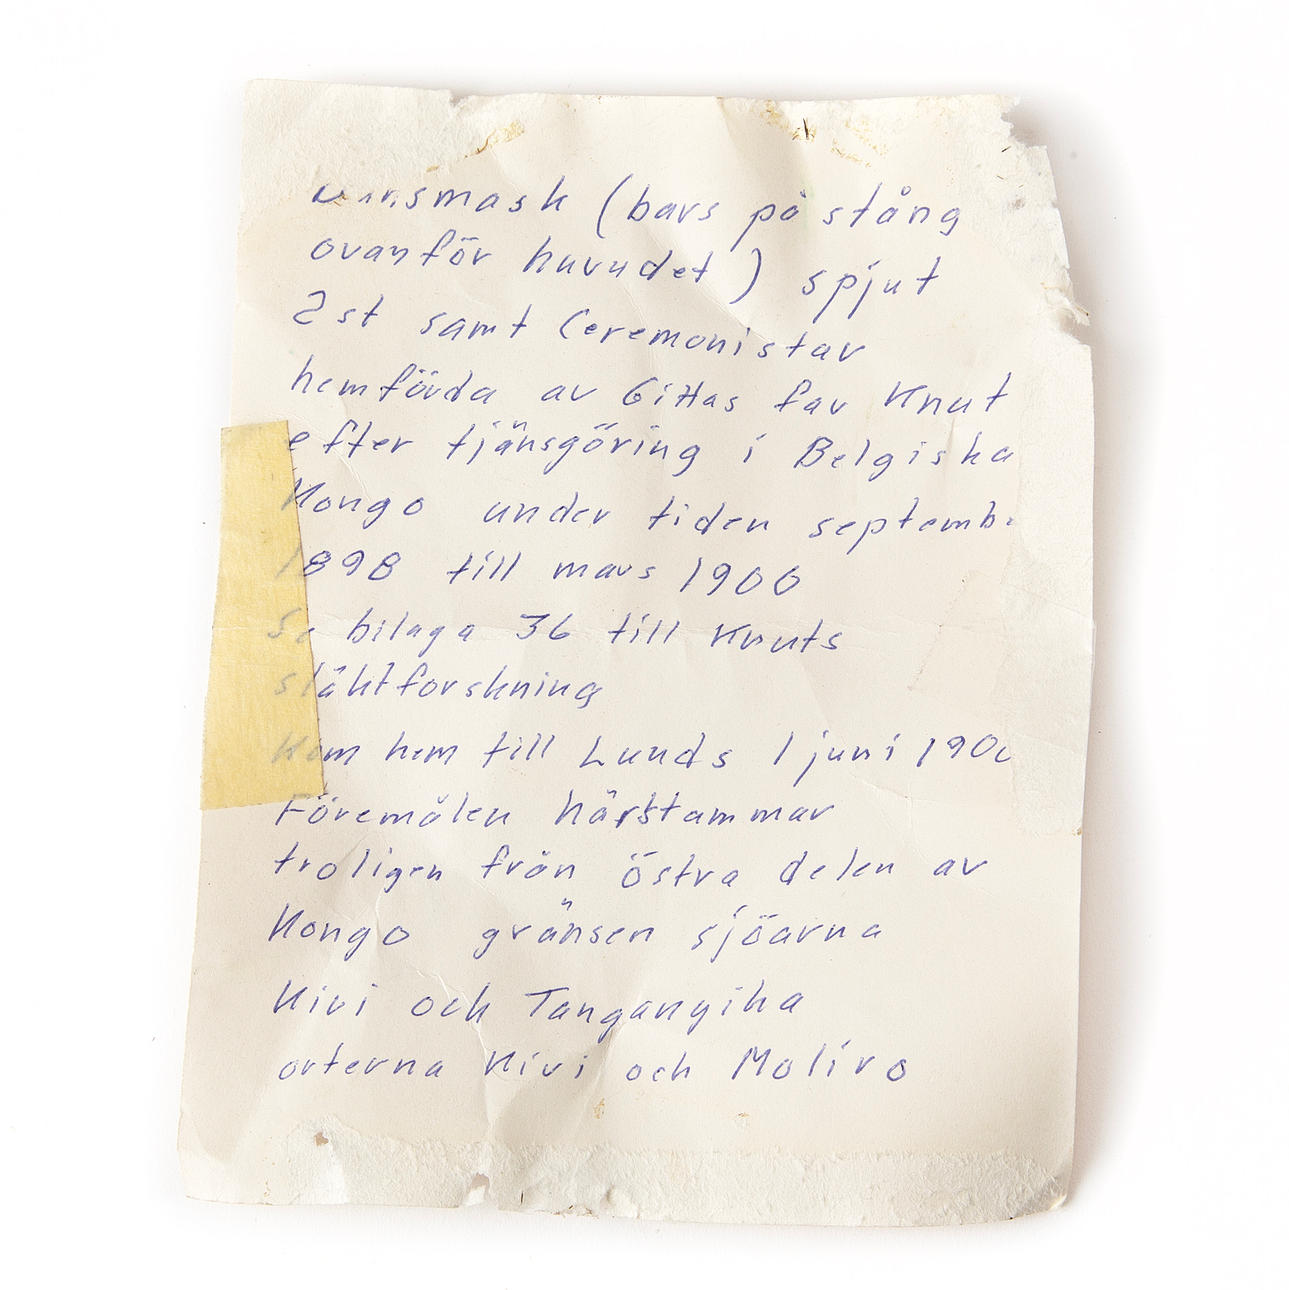 (bars på stång
ovanför huvudet) spjut
2st samt Ceremonistav
hemförda av Gittas far Knut
efter tjänsgöring i Belgiska
Kongo under tiden septemb
1898 till mars 1900
Se bilaga 36 till Knuts
släktforskning
Kom hem till Lunds 1 juni 1900
Föremålen härstammar
troligen från östra delen av
Kongo gränsen sjöarna
Kivi och Tanganyika
orterna Kivi och Moliro